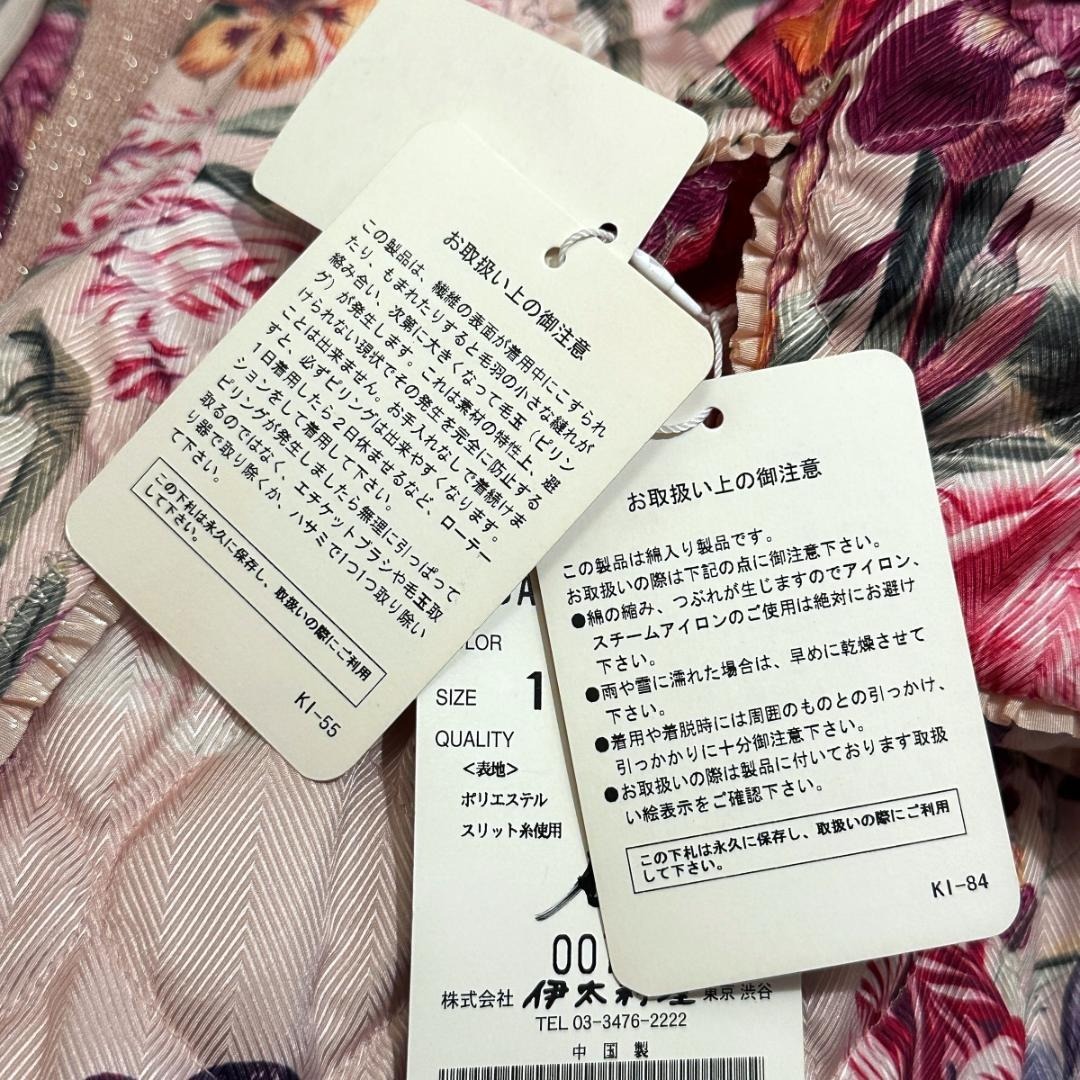 お取扱い上の御注意
この製品は、繊維の表面が着用中にこすられ
たり もまれたりすると毛羽の小さな縺れが
絡み合い、次第に大きくなって毛玉(ピリン
グ)が発生します。これは素材の特性上、避
けられない現状でその発生を完全に防止する
ことは出来ません。お手入れなしで着続けま
すと、必ずピリングは出来やすくなります。
1日着用したら2日休ませるなど、ローテー
ションをして着用して下さい。
ピリングが発生しましたら無理に引っぱって
取るのではなく、エチケットブラシや毛玉取
り器で取り除くか、ハサミで1つ1つ取り除い
て下さい。
この下札は永久に保存し、取扱いの際にご利用
して下さい。
KI-55
お取扱い上の御注意
この製品は綿入り製品です。
お取扱いの際は下記の点に御注意下さい。
●綿の縮み、つぶれが生じますのでアイロン、
スチームアイロンのご使用は絶対にお避け
下さい。
●雨や雪に濡れた場合は、早めに乾燥させて
下さい。
●着用や着脱時には周囲のものとの引っかけ、
引っかかりに十分御注意下さい。
●お取扱いの際は製品に付いております取扱
い絵表示をご確認下さい。
この下札は永久に保存し、取扱いの際にご利用
して下さい。
KI-84
OLOR
SIZE 1
QUALITY
<表地>
ポリエステル
スリット糸使用
00
株式会社 伊太利屋 東京 渋谷
TEL 03-3476-2222
中国製